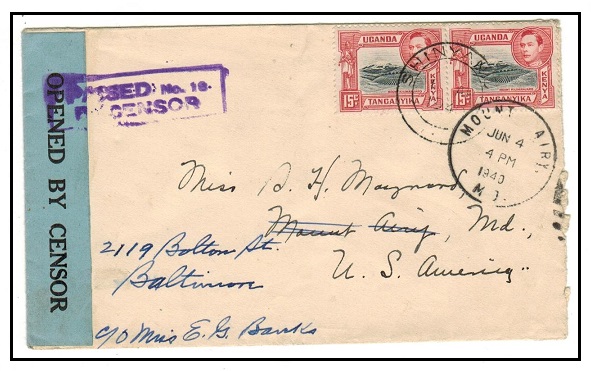 OPENED BY CENSOR
PASSED No. 18.
CENSOR
UGANDA
KENYA
15c
TANGANYIKA
UGANDA
KENYA
15c
TANGANYIKA
SHINYA
MOUNT AIRY,
JUN 4
4 PM
1940
MD.
Miss D. H. Maynard,
Mount Airy, Md.,
U. S. America
2119 Bolton St.
Baltimore
c/o Miss E. G. Banks